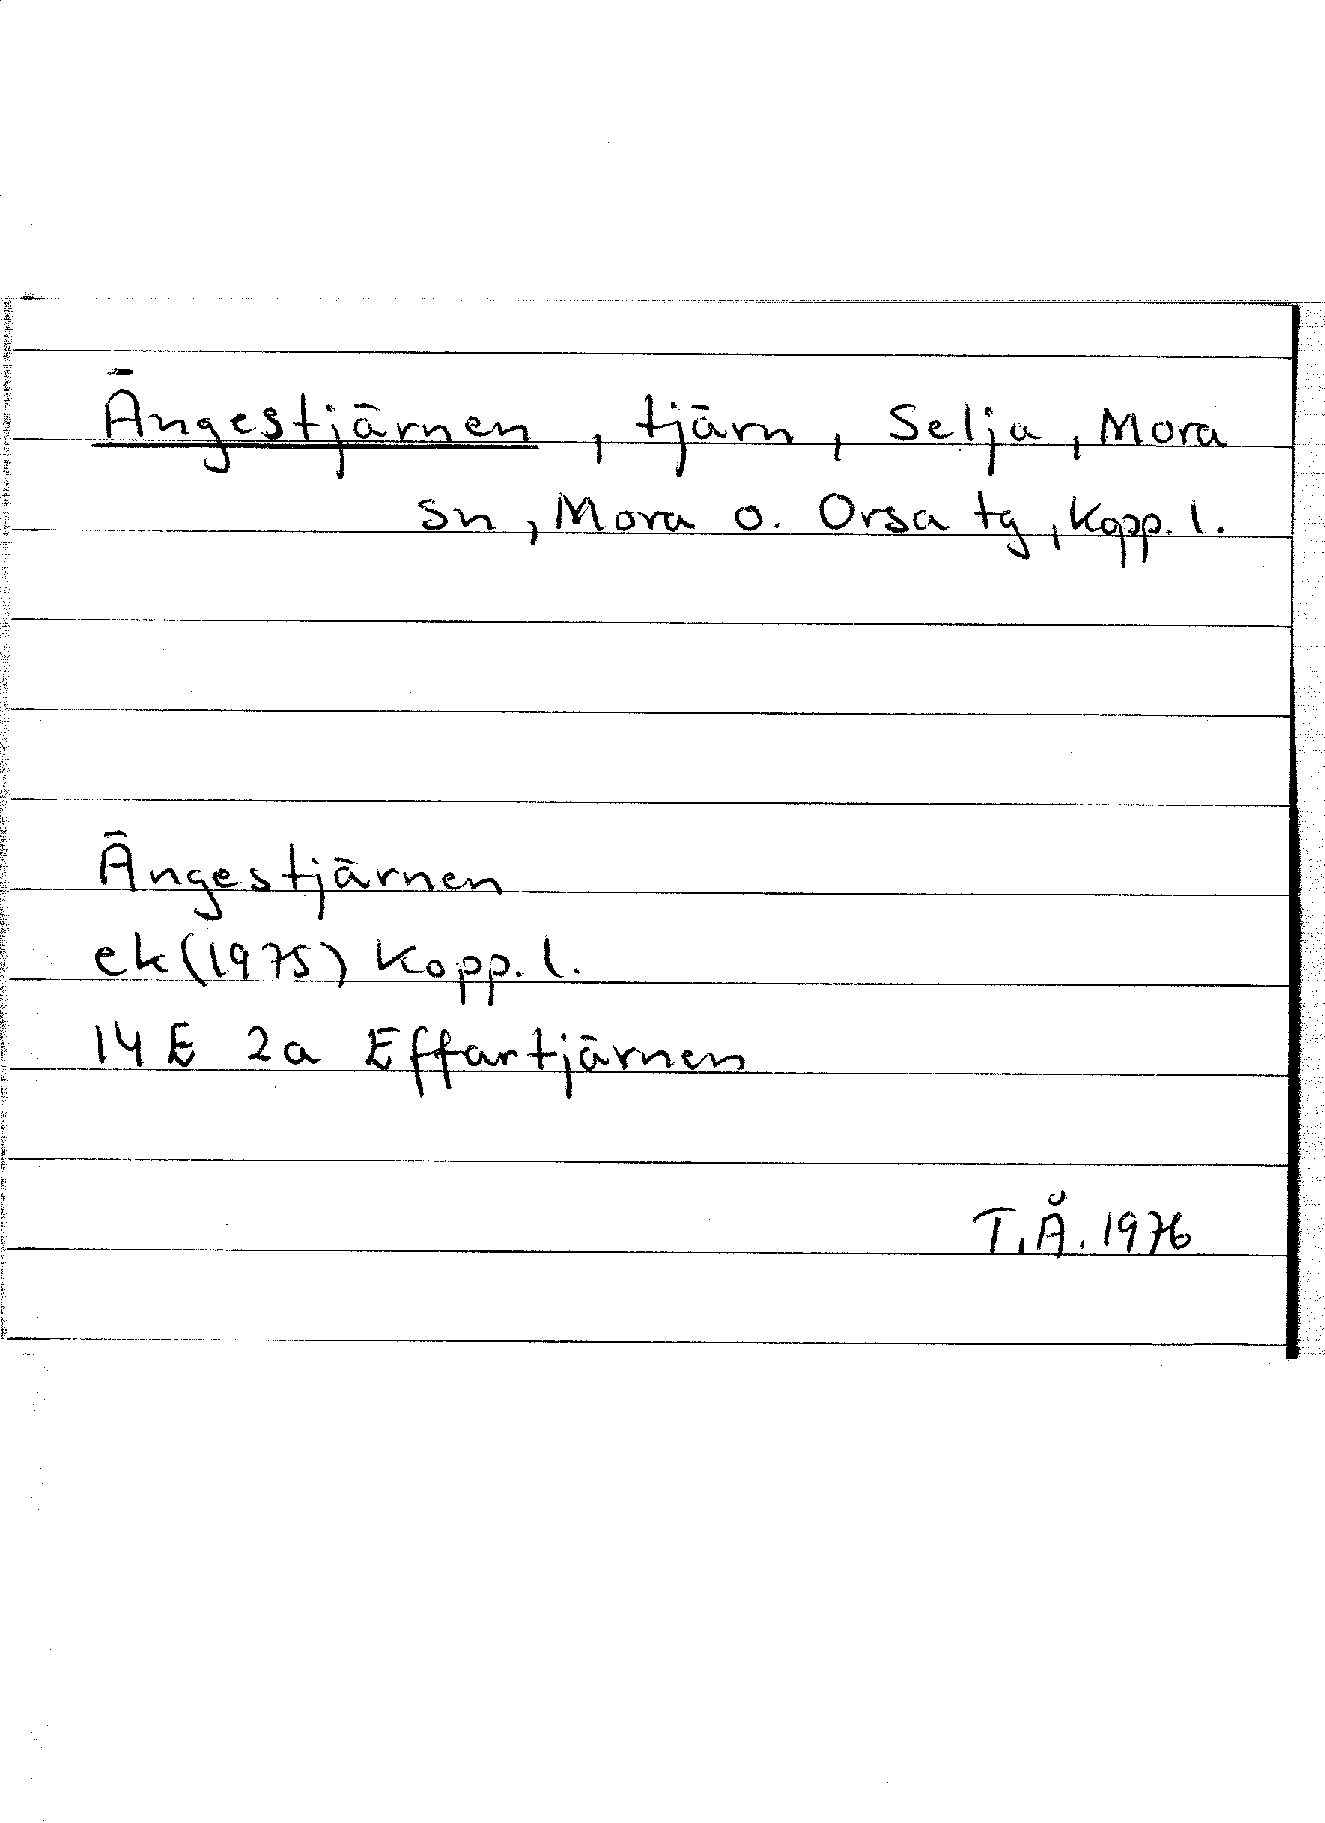 Ängestjärnen, tjärn, Selja, Mora
sn, Mora o. Orsa tg, Kopp. l.
Ängestjärnen
ek (1975) Kopp. l.
14 E 2a Effartjärnen
T.Å. 1976